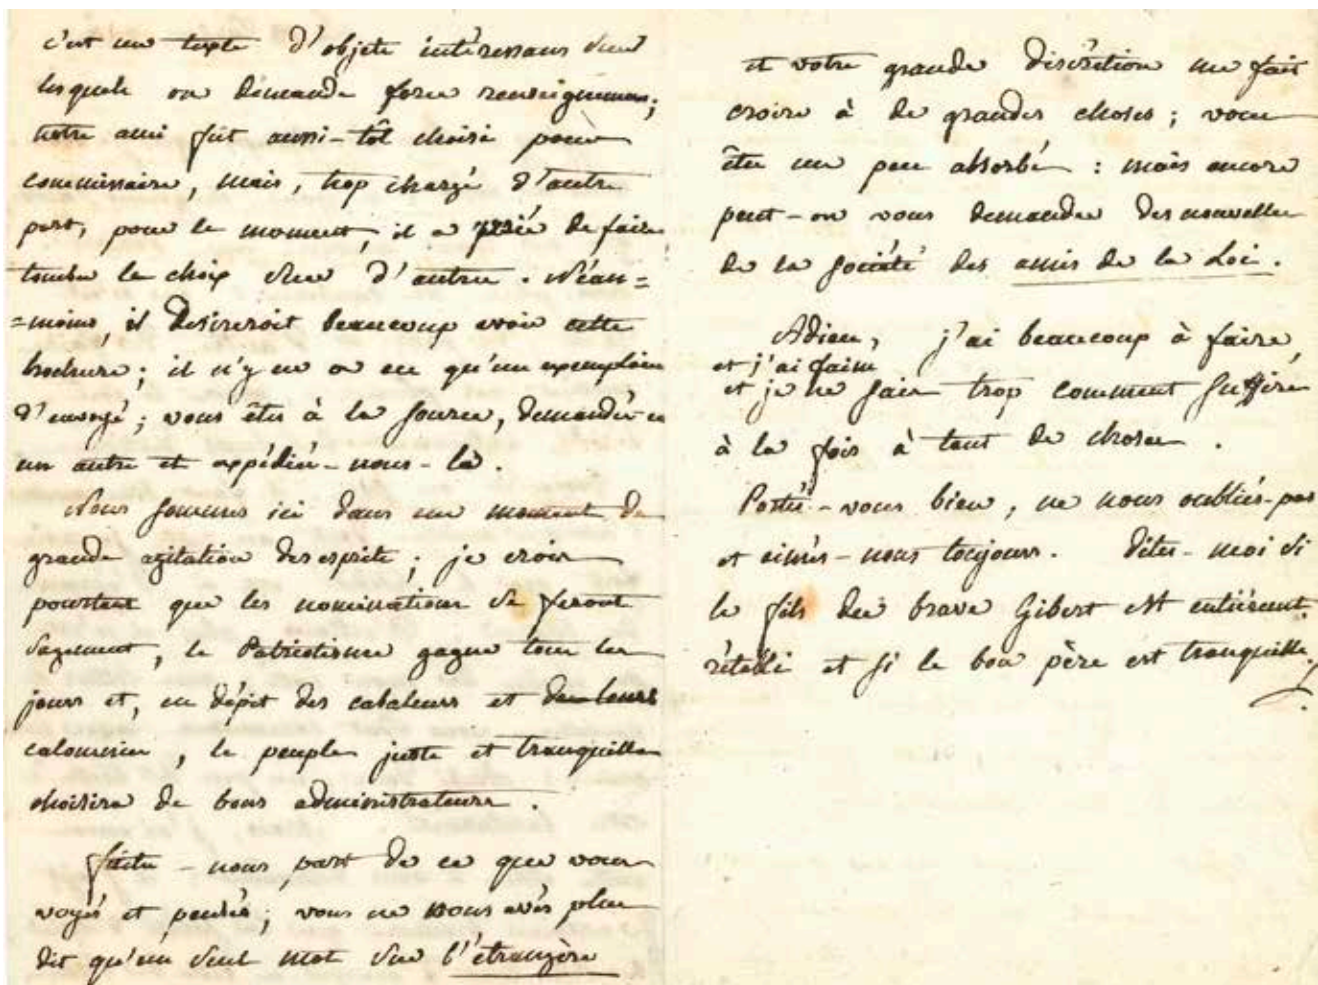 c'est un texte d'objets intéressans sur
lesquels on demande force renseignemens;
notre ami fut aussi-tôt choisi pour
commissaire, mais, trop chargé d'autre
part, pour le moment, il a prié de faire
tomber le choix sur d'autres. Néan=
=moins, il desireroit beaucoup avoir cette
brochure; il n'y en a eu qu'un exemplaire
d'envoyé; vous êtes à la source, demandés-en
un autre et expédiés-nous-la.
Nous sommes ici dans un moment de
grande agitation des esprits; je crois
pourtant que les nominations se feront
sagement, le Patriotisme gagne tous les
jours et, en dépit des cabaleurs et de leurs
calomnies, le peuple juste et tranquille
choisira de bons administrateurs.
faites-nous part de ce que vous
voyés et pensés; vous ne nous avés plus
dit qu'un seul mot sur l'étrangère
et votre grande discrétion me fait
croire à de grandes choses; vous
êtes un peu absorbé : mais encore
peut-on vous demander des nouvelles
de la société des amis de la Loi.
Adieu, j'ai beaucoup à faire,
et j'ai faim
et je ne sais trop comment suffire
à la fois à tant de choses.
Portés-vous bien, ne nous oubliés-pas
et aimés-nous toujours. Dites-moi si
le fils du brave Gibert est entièrement
rétabli et si le bon père est tranquille.